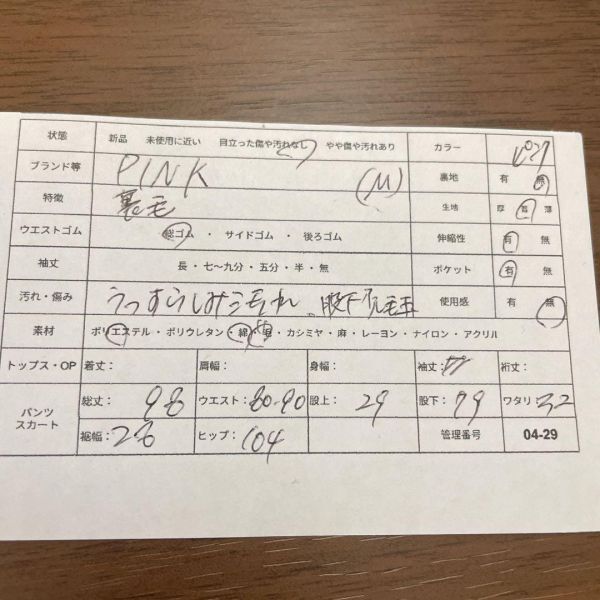 状態 新品 未使用に近い 目立った傷や汚れなし やや傷や汚れあり カラー ピンク
ブランド等 PINK (M) 裏地 有 無
特徴 裏毛 生地 厚 普 薄
ウエストゴム 総ゴム ・ サイドゴム ・ 後ろゴム 伸縮性 有 無
袖丈 長 ・ 七〜九分 ・ 五分 ・ 半 ・ 無 ポケット 有 無
汚れ・傷み うっすらしみ 股下 毛玉 使用感 有 無
素材 ポリエステル ・ ポリウレタン ・ 綿 ・ 毛 ・ カシミヤ ・ 麻 ・ レーヨン ・ ナイロン ・ アクリル
トップス・OP 着丈: 肩幅: 身幅: 袖丈: 裄丈:
パンツ スカート 総丈: 98 ウエスト: 80-90 股上: 29 股下: 79 ワタリ: 32
裾幅: 26 ヒップ: 104 管理番号 04-29